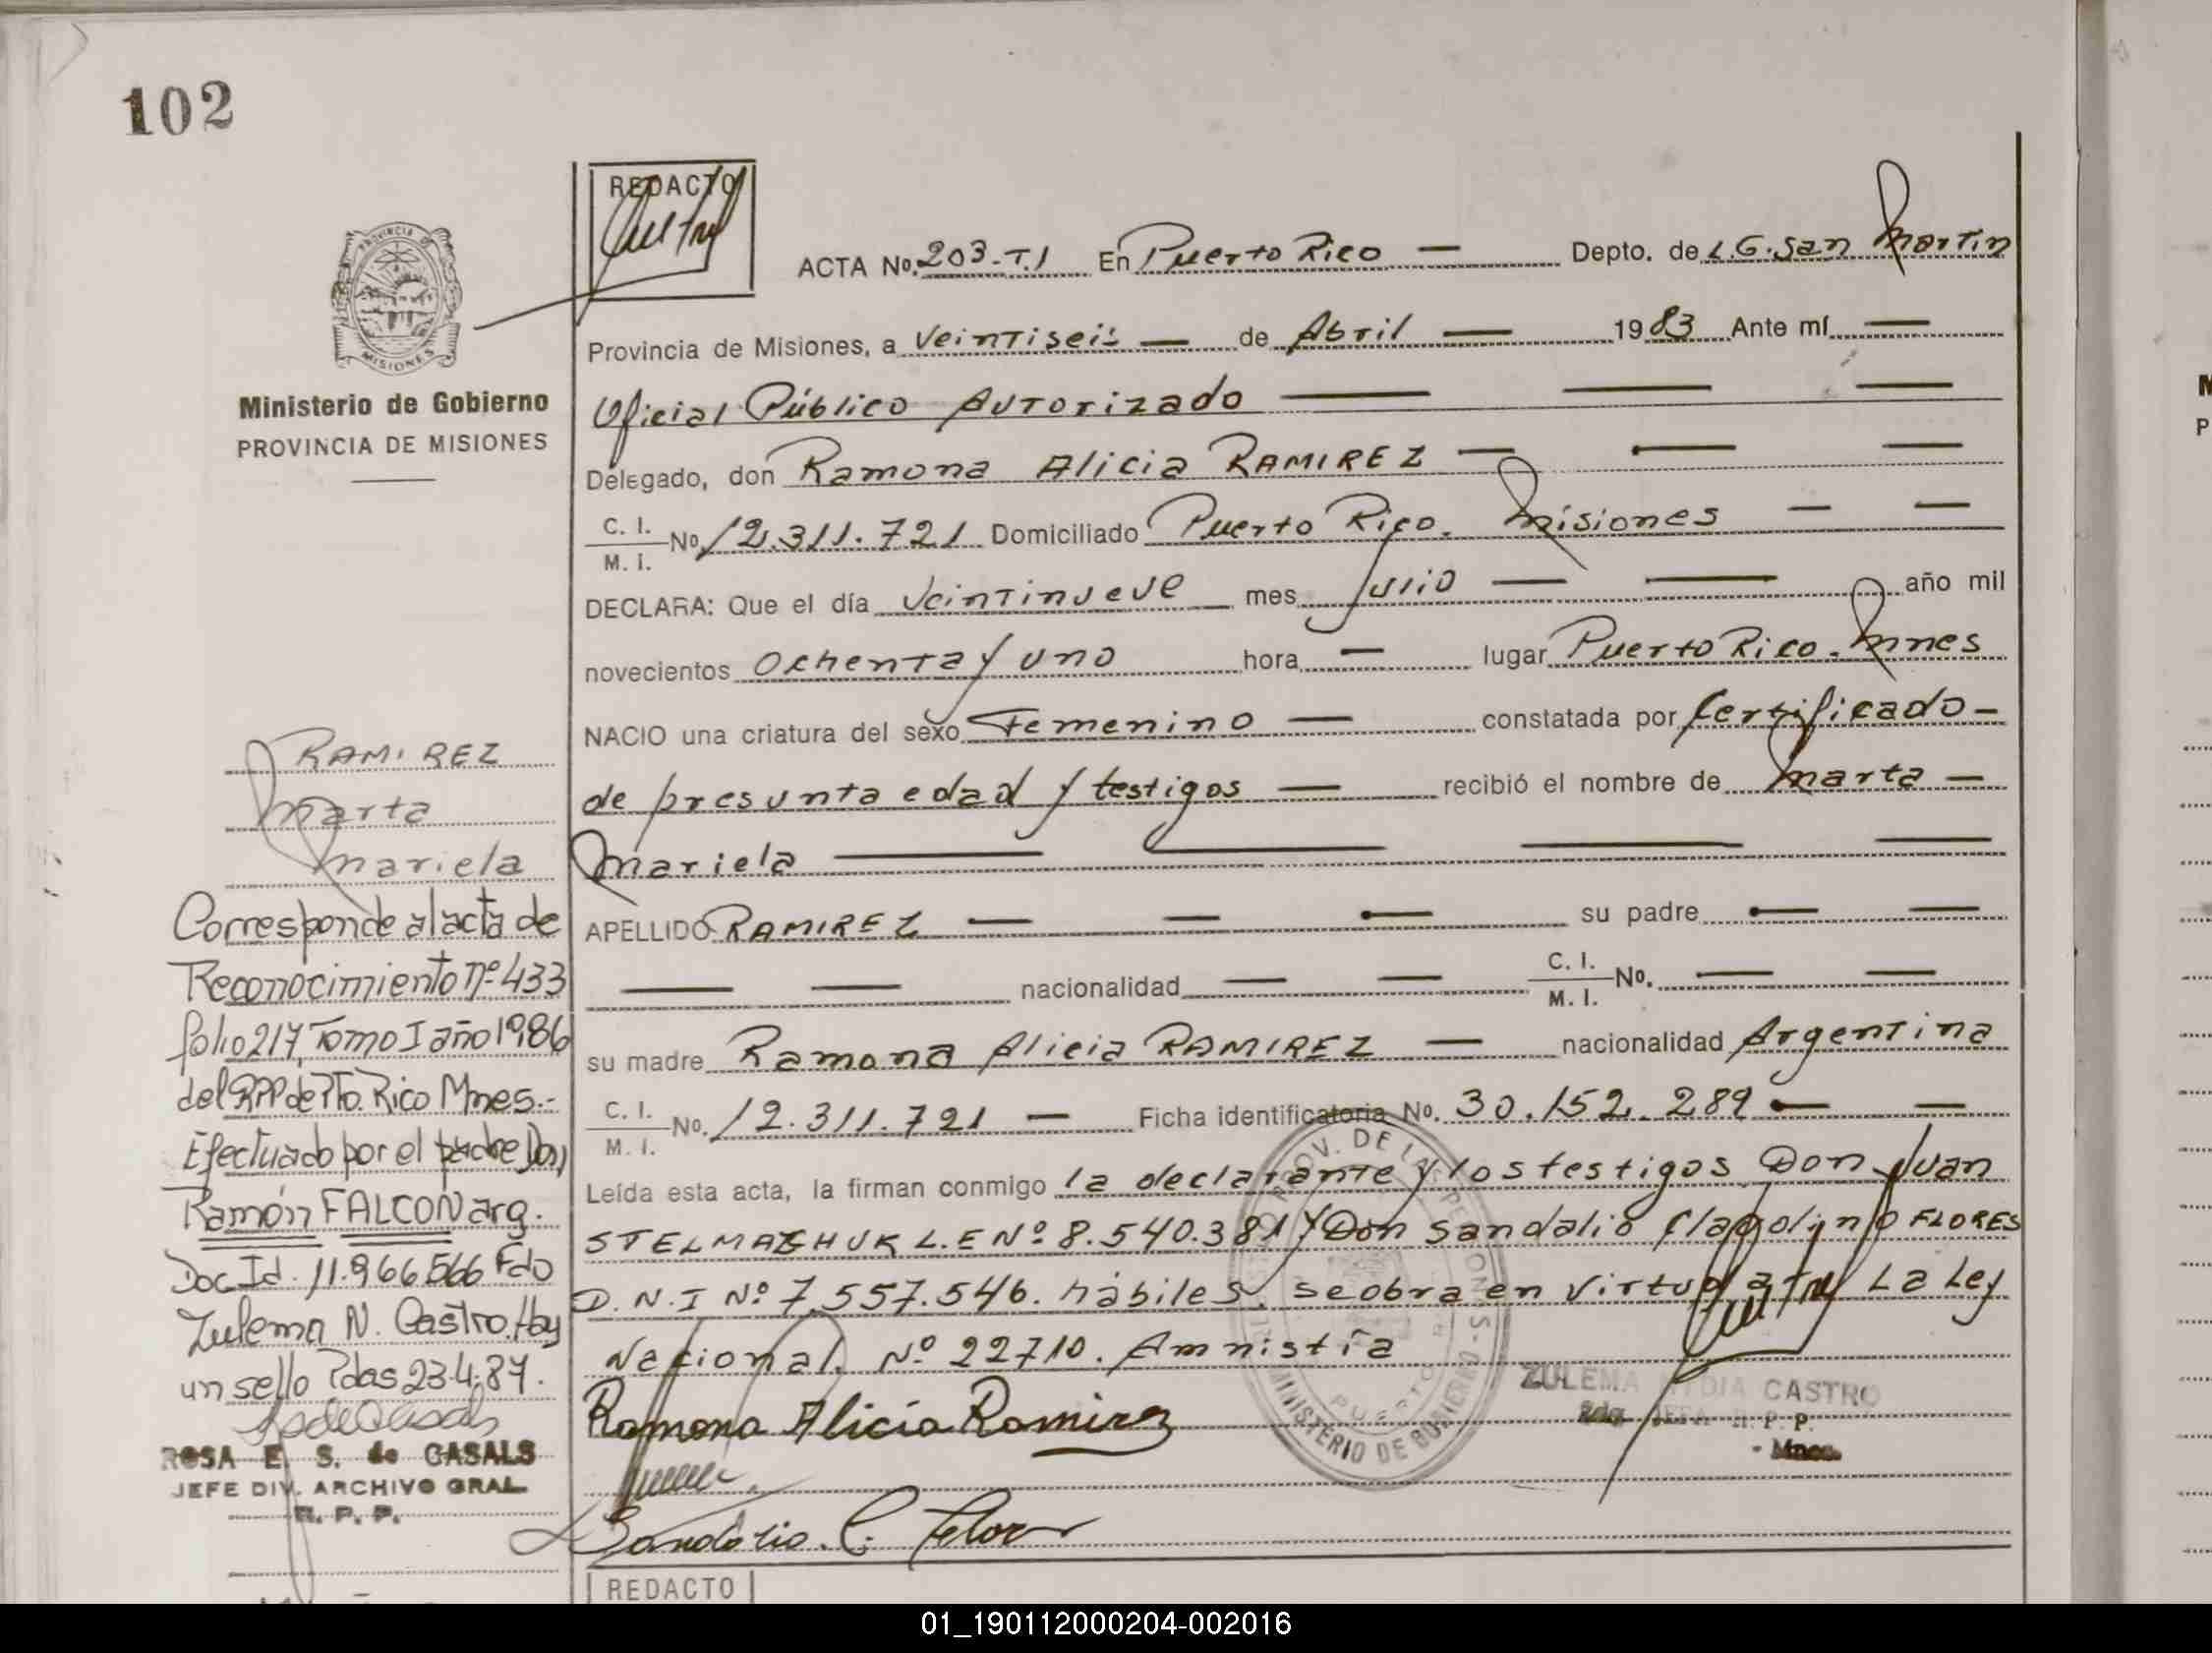 102
REDACTO
PROVINCIA DE
MISIONES
Ministerio de Gobierno
PROVINCIA DE MISIONES
ACTA No. 203-T.I En Puerto Rico — Depto. de L.G. San Martin
Provincia de Misiones, a Veintiseis — de Abril — 1983 Ante mí —
Oficial Público Autorizado — — —
Delegado, don Ramona Alicia RAMIREZ — — —
C. I. / M. I. No 12.311.721 Domiciliado Puerto Rico. Misiones — —
DECLARA: Que el día Veintinueve mes Julio — — año mil
novecientos Ochenta y uno hora — lugar Puerto Rico. Mnes
NACIO una criatura del sexo Femenino — constatada por Certificado —
de presunta edad y testigos — recibió el nombre de Marta —
Mariela — — — —
APELLIDO RAMIREZ — — — su padre — —
— — nacionalidad — — C. I. / M. I. No. — —
su madre Ramona Alicia RAMIREZ — nacionalidad Argentina
C. I. / M. I. No. 12.311.721 — Ficha identificatoria No. 30.152.289 — —
Leída esta acta, la firman conmigo la declarante y los testigos Don Juan
STELMAZHUK L.E Nº 8.540.381 y Don Sandalio FLORES
D.N.I Nº 7.557.546. hábiles. se obra en Virtud a La Ley
Nacional. Nº 22710. Amnistía
Ramona Alicia Ramirez
Sandalio C. Flores
RAMIREZ
Marta
Mariela
Corresponde al acta de
Reconocimiento Nº 433
folio 217, Tomo I año 1986
del RPP de Pto. Rico Mnes.-
Efectuado por el padre Don
Ramón FALCON arg.
Doc Id. 11.966.566 Fdo
Zulema N. Castro. Hay
un sello Pdas 23.4.87.
ROSA E. S. de CASALS
JEFE DIV. ARCHIVO GRAL.
R. P. P.
ZULEMA NYDIA CASTRO
JEFA R. P. P.
Mnes.
PROV. DE LAS
MINISTERIO DE GOBIERNO
PUERTO
REDACTO
01_190112000204-002016